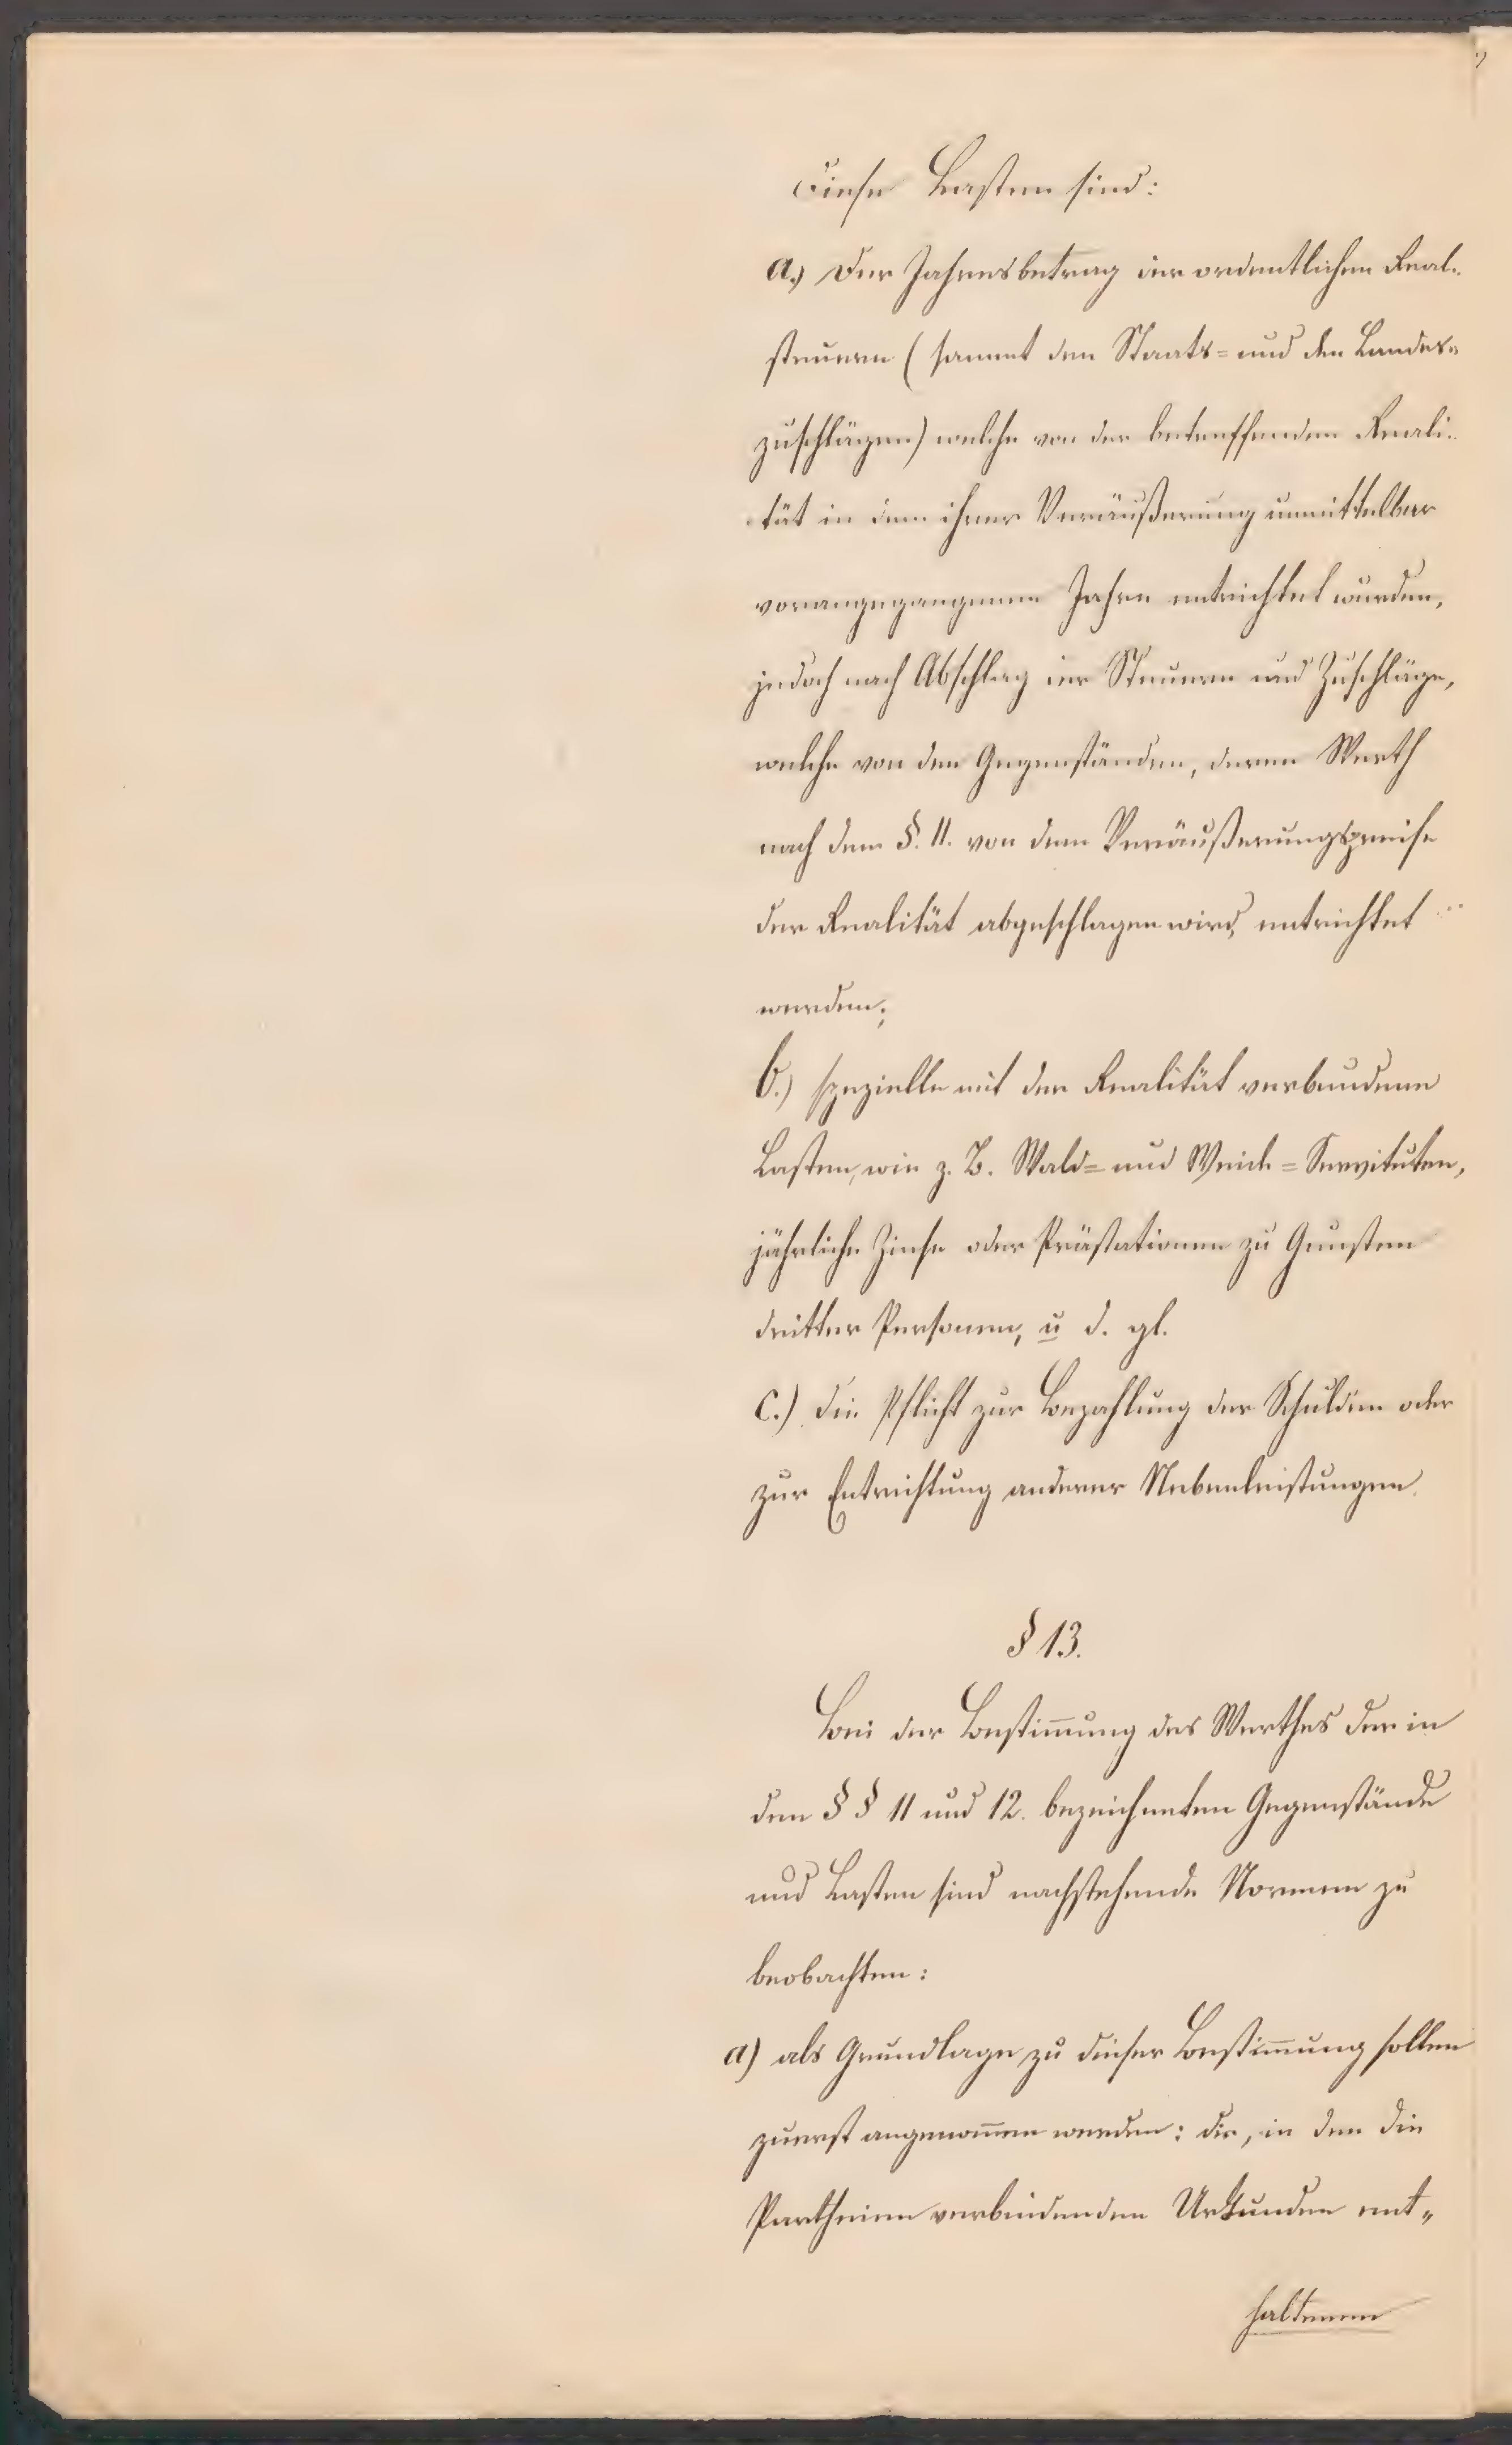 Diese Lasten sind:
a.) Der Jahresbetrag der ordentlichen Real-
steuern (sammt den Staats= und den Landes=
zuschlägen) welche von der betreffenden Reali-
tät in dem ihrer Veräußerung unmittelbar
vorangegangenen Jahre entrichtet wurden,
jedoch nach Abschlag der Steuern und Zuschläge,
welche von den Gegenständen, deren Werth
nach dem §. 11. von dem Veräußerungspreise
der Realität abgeschlagen wird, entrichtet
werden;
b.) spezielle mit der Realität verbundene
Lasten, wie z. B. Wald= und Weide=Servituten,
jährliche Zinse oder Prästationen zu Gunsten
dritter Personen, u d. gl.
c.) die Pflicht zur Bezahlung der Schulden oder
zur Entrichtung anderer Nebenleistungen.
§ 13.
Bei der Bestim̅ung des Werthes der in
den § § 11 und 12. bezeichneten Gegenstände
und Lasten sind nachstehende Normen zu
beobachten:
a) als Grundlage zu dieser Bestim̅ung sollen
zuerst angenom̅en werden: die, in den die
Partheien verbindenden Urkunden ent„
haltenen